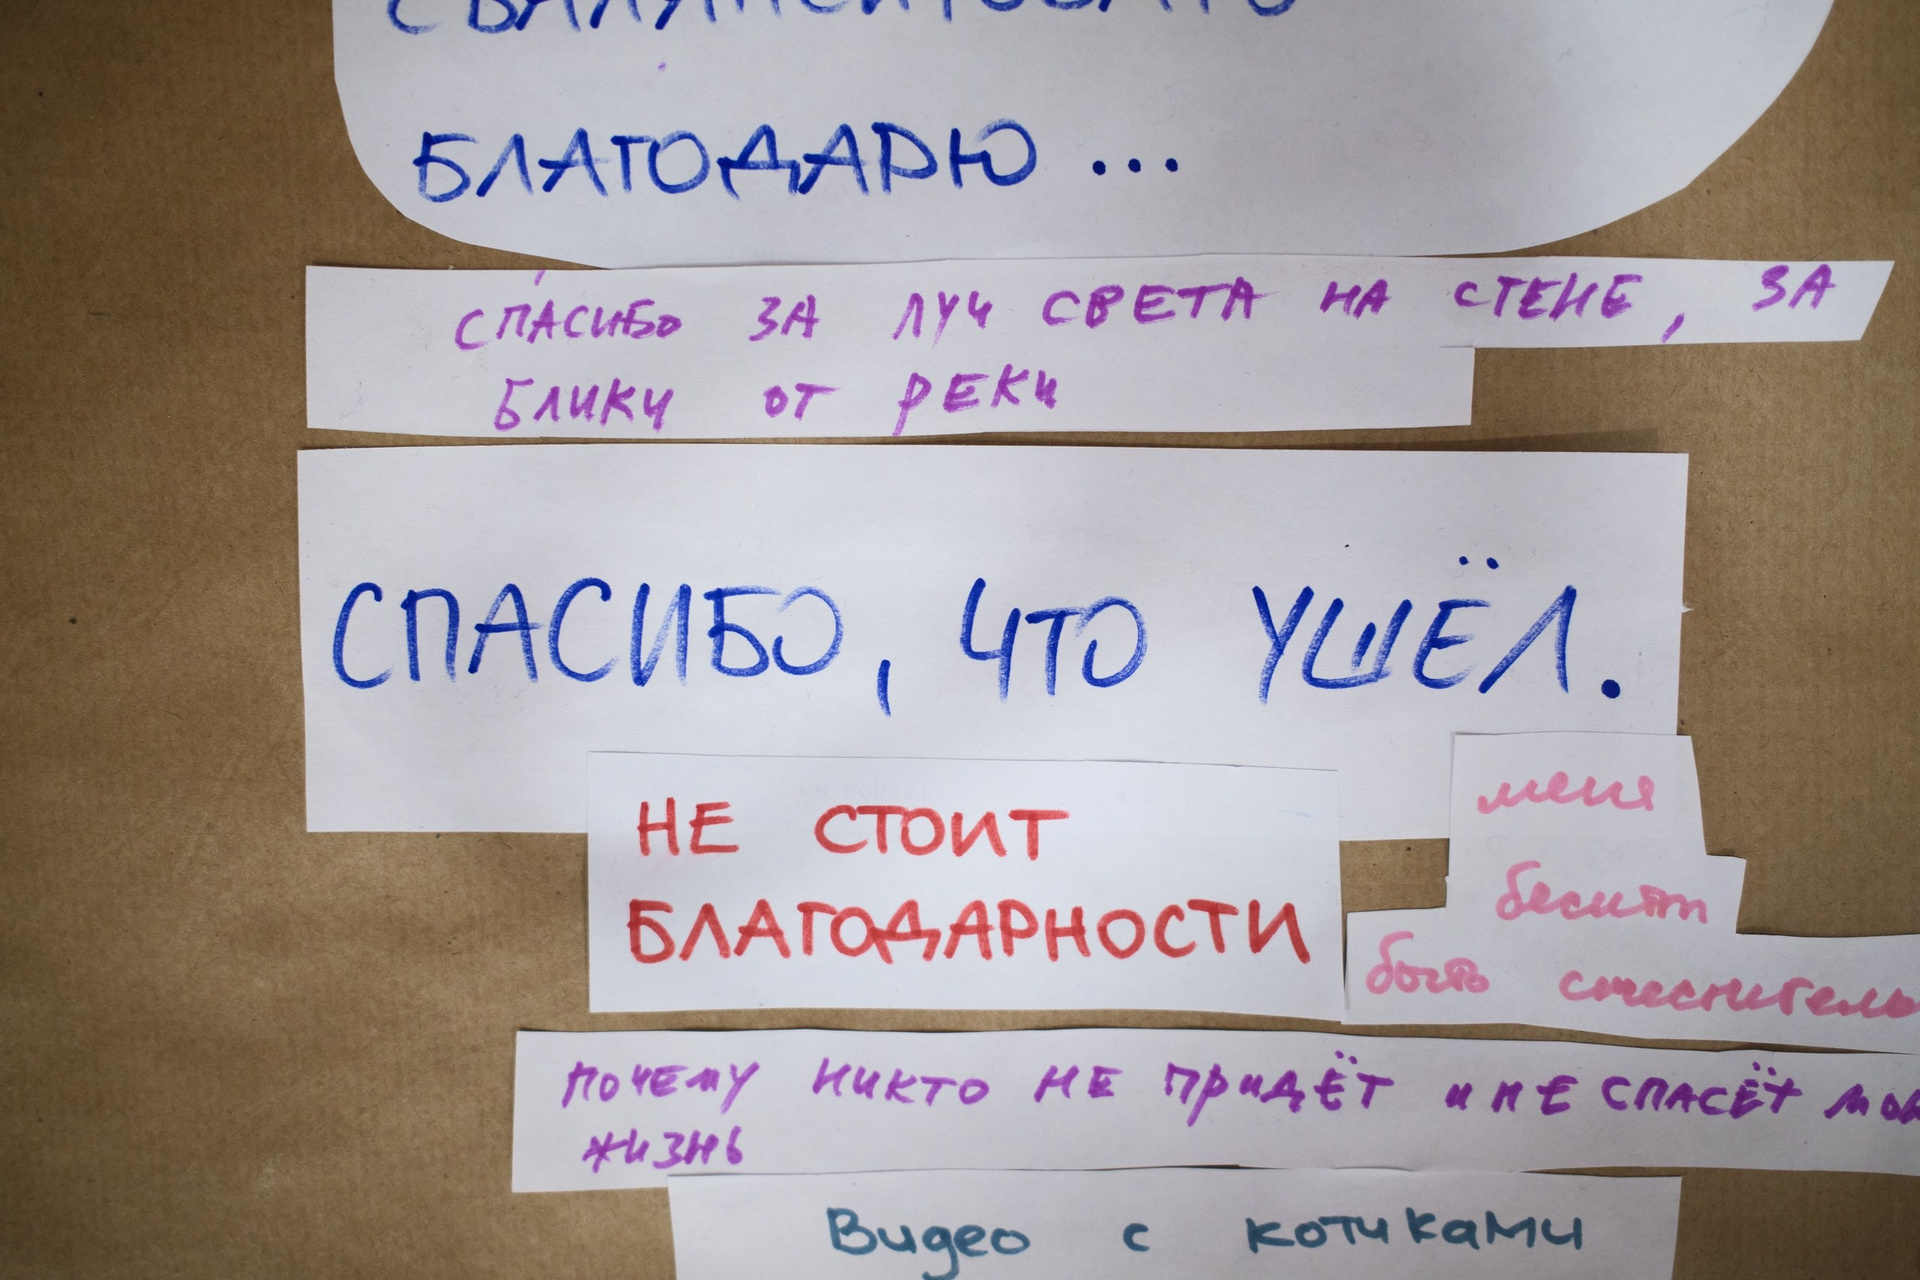 БЛАГОДАРЮ ...
СПАСИБО ЗА ЛУЧ СВЕТА НА СТЕНЕ, ЗА
БЛИКИ ОТ РЕКИ
СПАСИБО, ЧТО УШЁЛ.
НЕ СТОИТ
БЛАГОДАРНОСТИ
меня
бесит
быть стеснитель
ПОЧЕМУ НИКТО НЕ ПРИДЁТ И НЕ СПАСЁТ МОЮ
ЖИЗНЬ
Видео с котиками